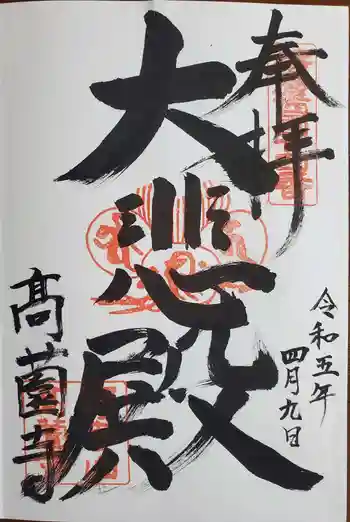 奉拝
令和五年
四月九日
大悲殿
髙薗寺